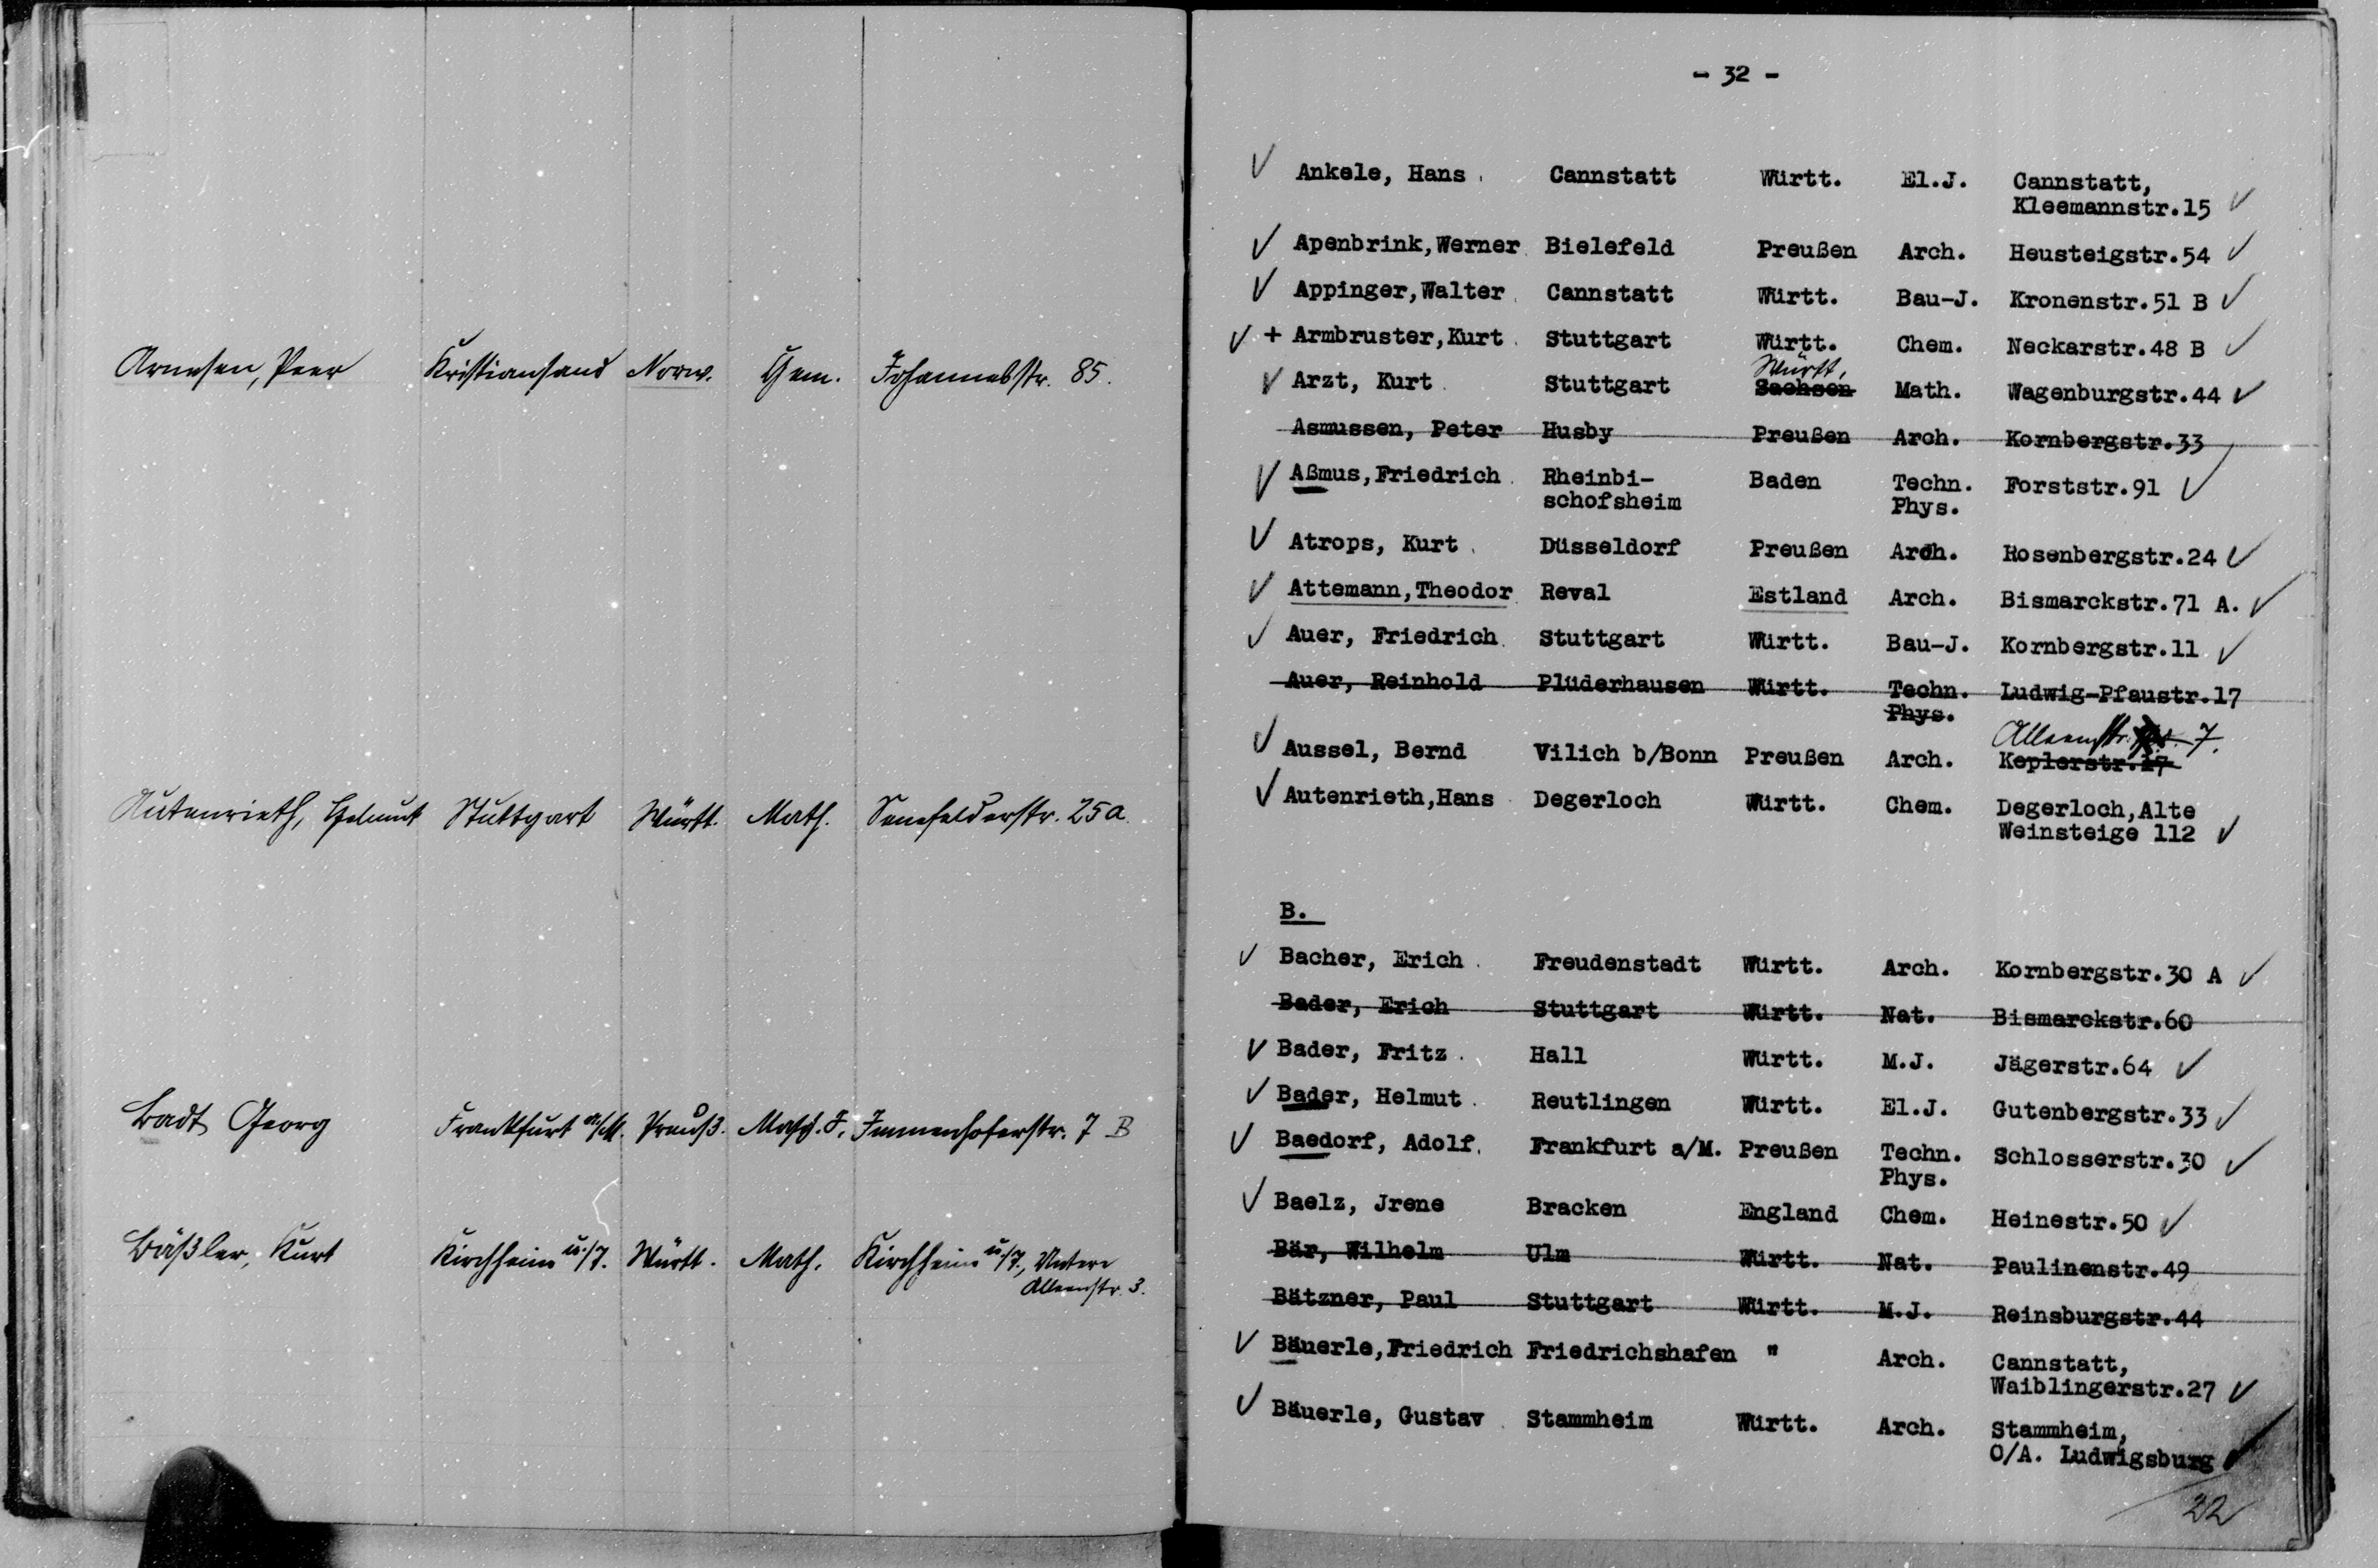 Arnesen, Peer Kristiansand Norw. Chem. Johannesstr. 85.
Autenrieth, Helmut Stuttgart Württ. Math. Senefelderstr. 25a.
Badt, Georg Frankfurt a/M. Preuß. Immenhoferstr. 7 B
Bäßler, Kurt Kirchheim u/T. Württ. Math. Kirchheim u/T., Untere
Alleenstr. 3.
- 32 -
Ankele, Hans Cannstatt Württ. El.J. Cannstatt,
Kleemannstr.15
Apenbrink,Werner Bielefeld Preußen Arch. Heusteigstr.54
Appinger,Walter Cannstatt Württ. Bau-J. Kronenstr.51 B
+ Armbruster,Kurt Stuttgart Württ. Chem. Neckarstr.48 B
Württ.
Arzt, Kurt Stuttgart Sachsen Math. Wagenburgstr.44
Asmussen, Peter Husby Preußen Arch. Kornbergstr.33
Aßmus,Friedrich Rheinbi- Baden Techn. Forststr.91
schofsheim Phys.
Atrops, Kurt Düsseldorf Preußen Arch. Rosenbergstr.24
Attemann,Theodor Reval Estland Arch. Bismarckstr.71 A.
Auer, Friedrich Stuttgart Württ. Bau-J. Kornbergstr.11
Auer, Reinhold Plüderhausen Württ. Techn. Ludwig-Pfaustr.17
Phys.
Alleenstr. 7.
Aussel, Bernd Vilich b/Bonn Preußen Arch. Keplerstr.17
Autenrieth,Hans Degerloch Württ. Chem. Degerloch,Alte
Weinsteige 112
B.
Bacher, Erich Freudenstadt Württ. Arch. Kornbergstr.30 A
Bader, Erich Stuttgart Württ. Nat. Bismarckstr.60
Bader, Fritz Hall Württ. M.J. Jägerstr.64
Bader, Helmut Reutlingen Württ. El.J. Gutenbergstr.33
Baedorf, Adolf Frankfurt a/M. Preußen Techn. Schlosserstr.30
Phys.
Baelz, Jrene Bracken England Chem. Heinestr.50
Bär, Wilhelm Ulm Württ. Nat. Paulinenstr.49
Bätzner, Paul Stuttgart Württ. M.J. Reinsburgstr.44
Bäuerle,Friedrich Friedrichshafen " Arch. Cannstatt,
Waiblingerstr.27
Bäuerle, Gustav Stammheim Württ. Arch. Stammheim,
O/A. Ludwigsburg
22